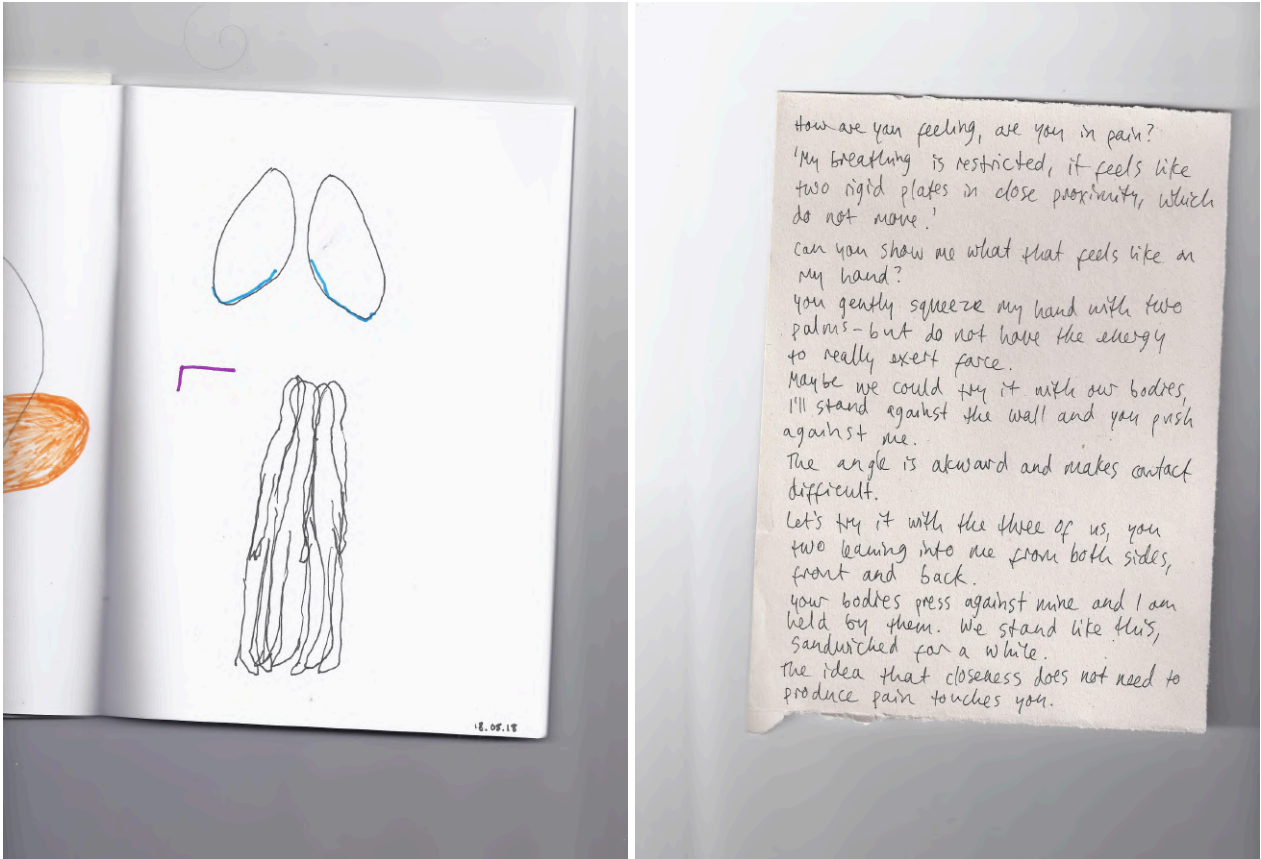 18.08.18
How are you feeling, are you in pain?
'My breathing is restricted, it feels like
two rigid plates in close proximity, which
do not move.'
Can you show me what that feels like on
my hand?
You gently squeeze my hand with two
palms - but do not have the energy
to really exert force.
Maybe we could try it with our bodies,
I'll stand against the wall and you push
against me.
The angle is akward and makes contact
difficult.
Let's try it with the three of us, you
two leaning into me from both sides,
front and back.
Your bodies press against mine and I am
held by them. We stand like this,
sandwiched for a while.
The idea that closeness does not need to
produce pain touches you.